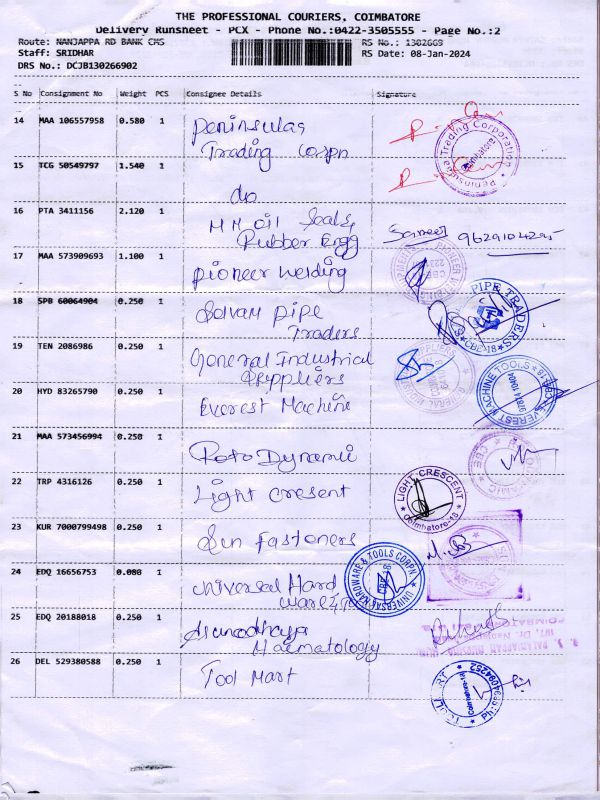 THE PROFESSIONAL COURIERS, COIMBATORE
Delivery Runsheet - PCX - Phone No.:0422-3505555 - Page No.:2
Route: NANJAPPA RD BANK CMS
RS No.: 1302669
Staff: SRIDHAR
RS Date: 08-Jan-2024
DRS No.: DCJB130266902
S No Consignment No Weight PCS Consignee Details Signature
14 MAA 106557958 0.580 1 Peninsulas
Trading Corpn
Peninsula Trading Corporation
Coimbatore
15 TCG 50549797 1.540 1 do
16 PTA 3411156 2.120 1 MM Oil Seals
Rubber Engg
Sameer
17 MAA 573909693 1.100 1 Pioneer Welding
18 SPB 60064904 0.250 1 Selvam Pipe
Traders
PIPE TRADERS
CBE-18
19 TEN 2086986 0.250 1 General Industrial
Suppliers
20 HYD 83265790 0.250 1 Everest Machine
EVEREST MACHINE TOOLS
21 MAA 573456994 0.250 1 Roto Dynamic
22 TRP 4316126 0.250 1 Light Cresent
LIGHT CRESCENT
Coimbatore-18
23 KUR 7000799498 0.250 1 Sun Fasteners
24 EDQ 16656753 0.080 1 Universal Hard
ware &
UNIVERSAL HARDWARE & TOOLS CORPN
25 EDQ 20188018 0.250 1
Haematology
26 DEL 529380588 0.250 1 Tool Mart
Coimbatore-18